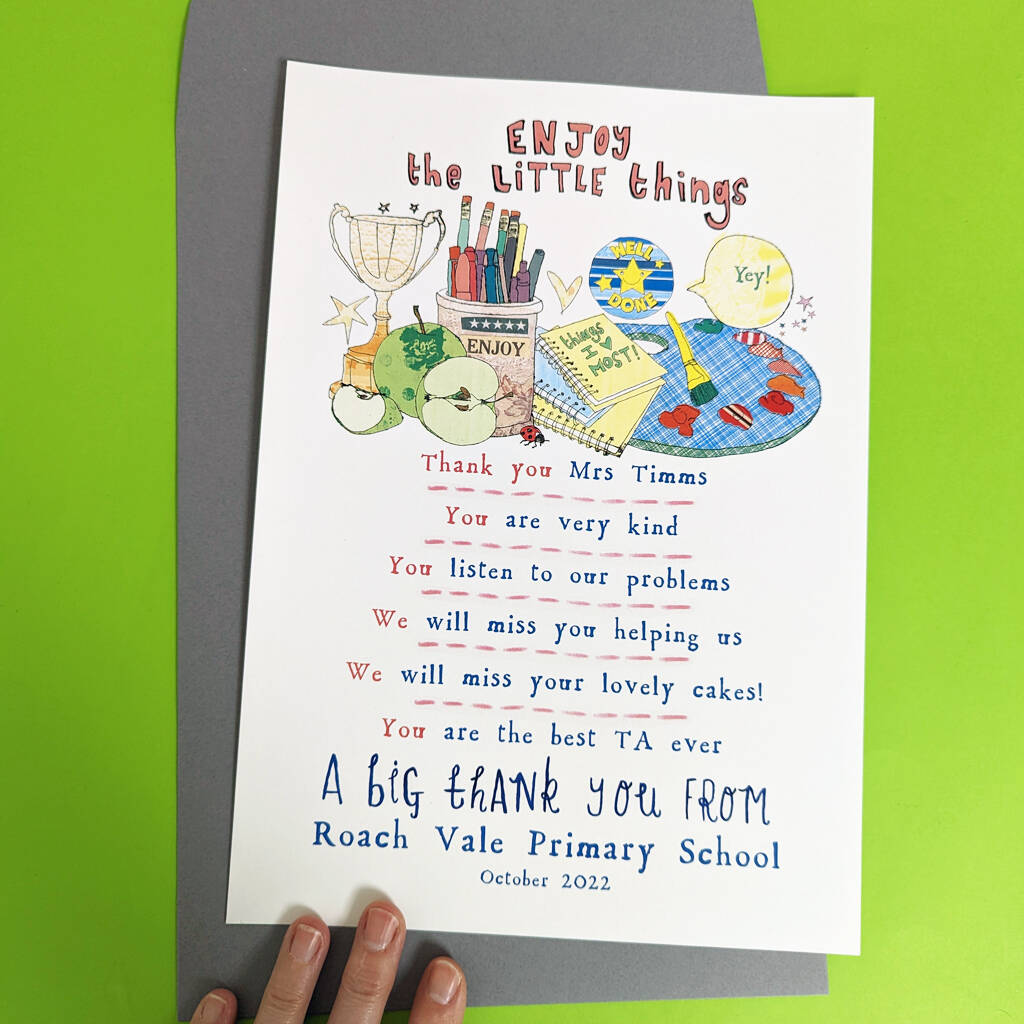 ENJOY
the LiTTLE things
WELL
DONE
Yey!
ENJOY
things
I
MOST!
Thank you Mrs Timms
You are very kind
You listen to our problems
We will miss you helping us
We will miss your lovely cakes!
You are the best TA ever
A biG thANk you FROM
Roach Vale Primary School
October 2022